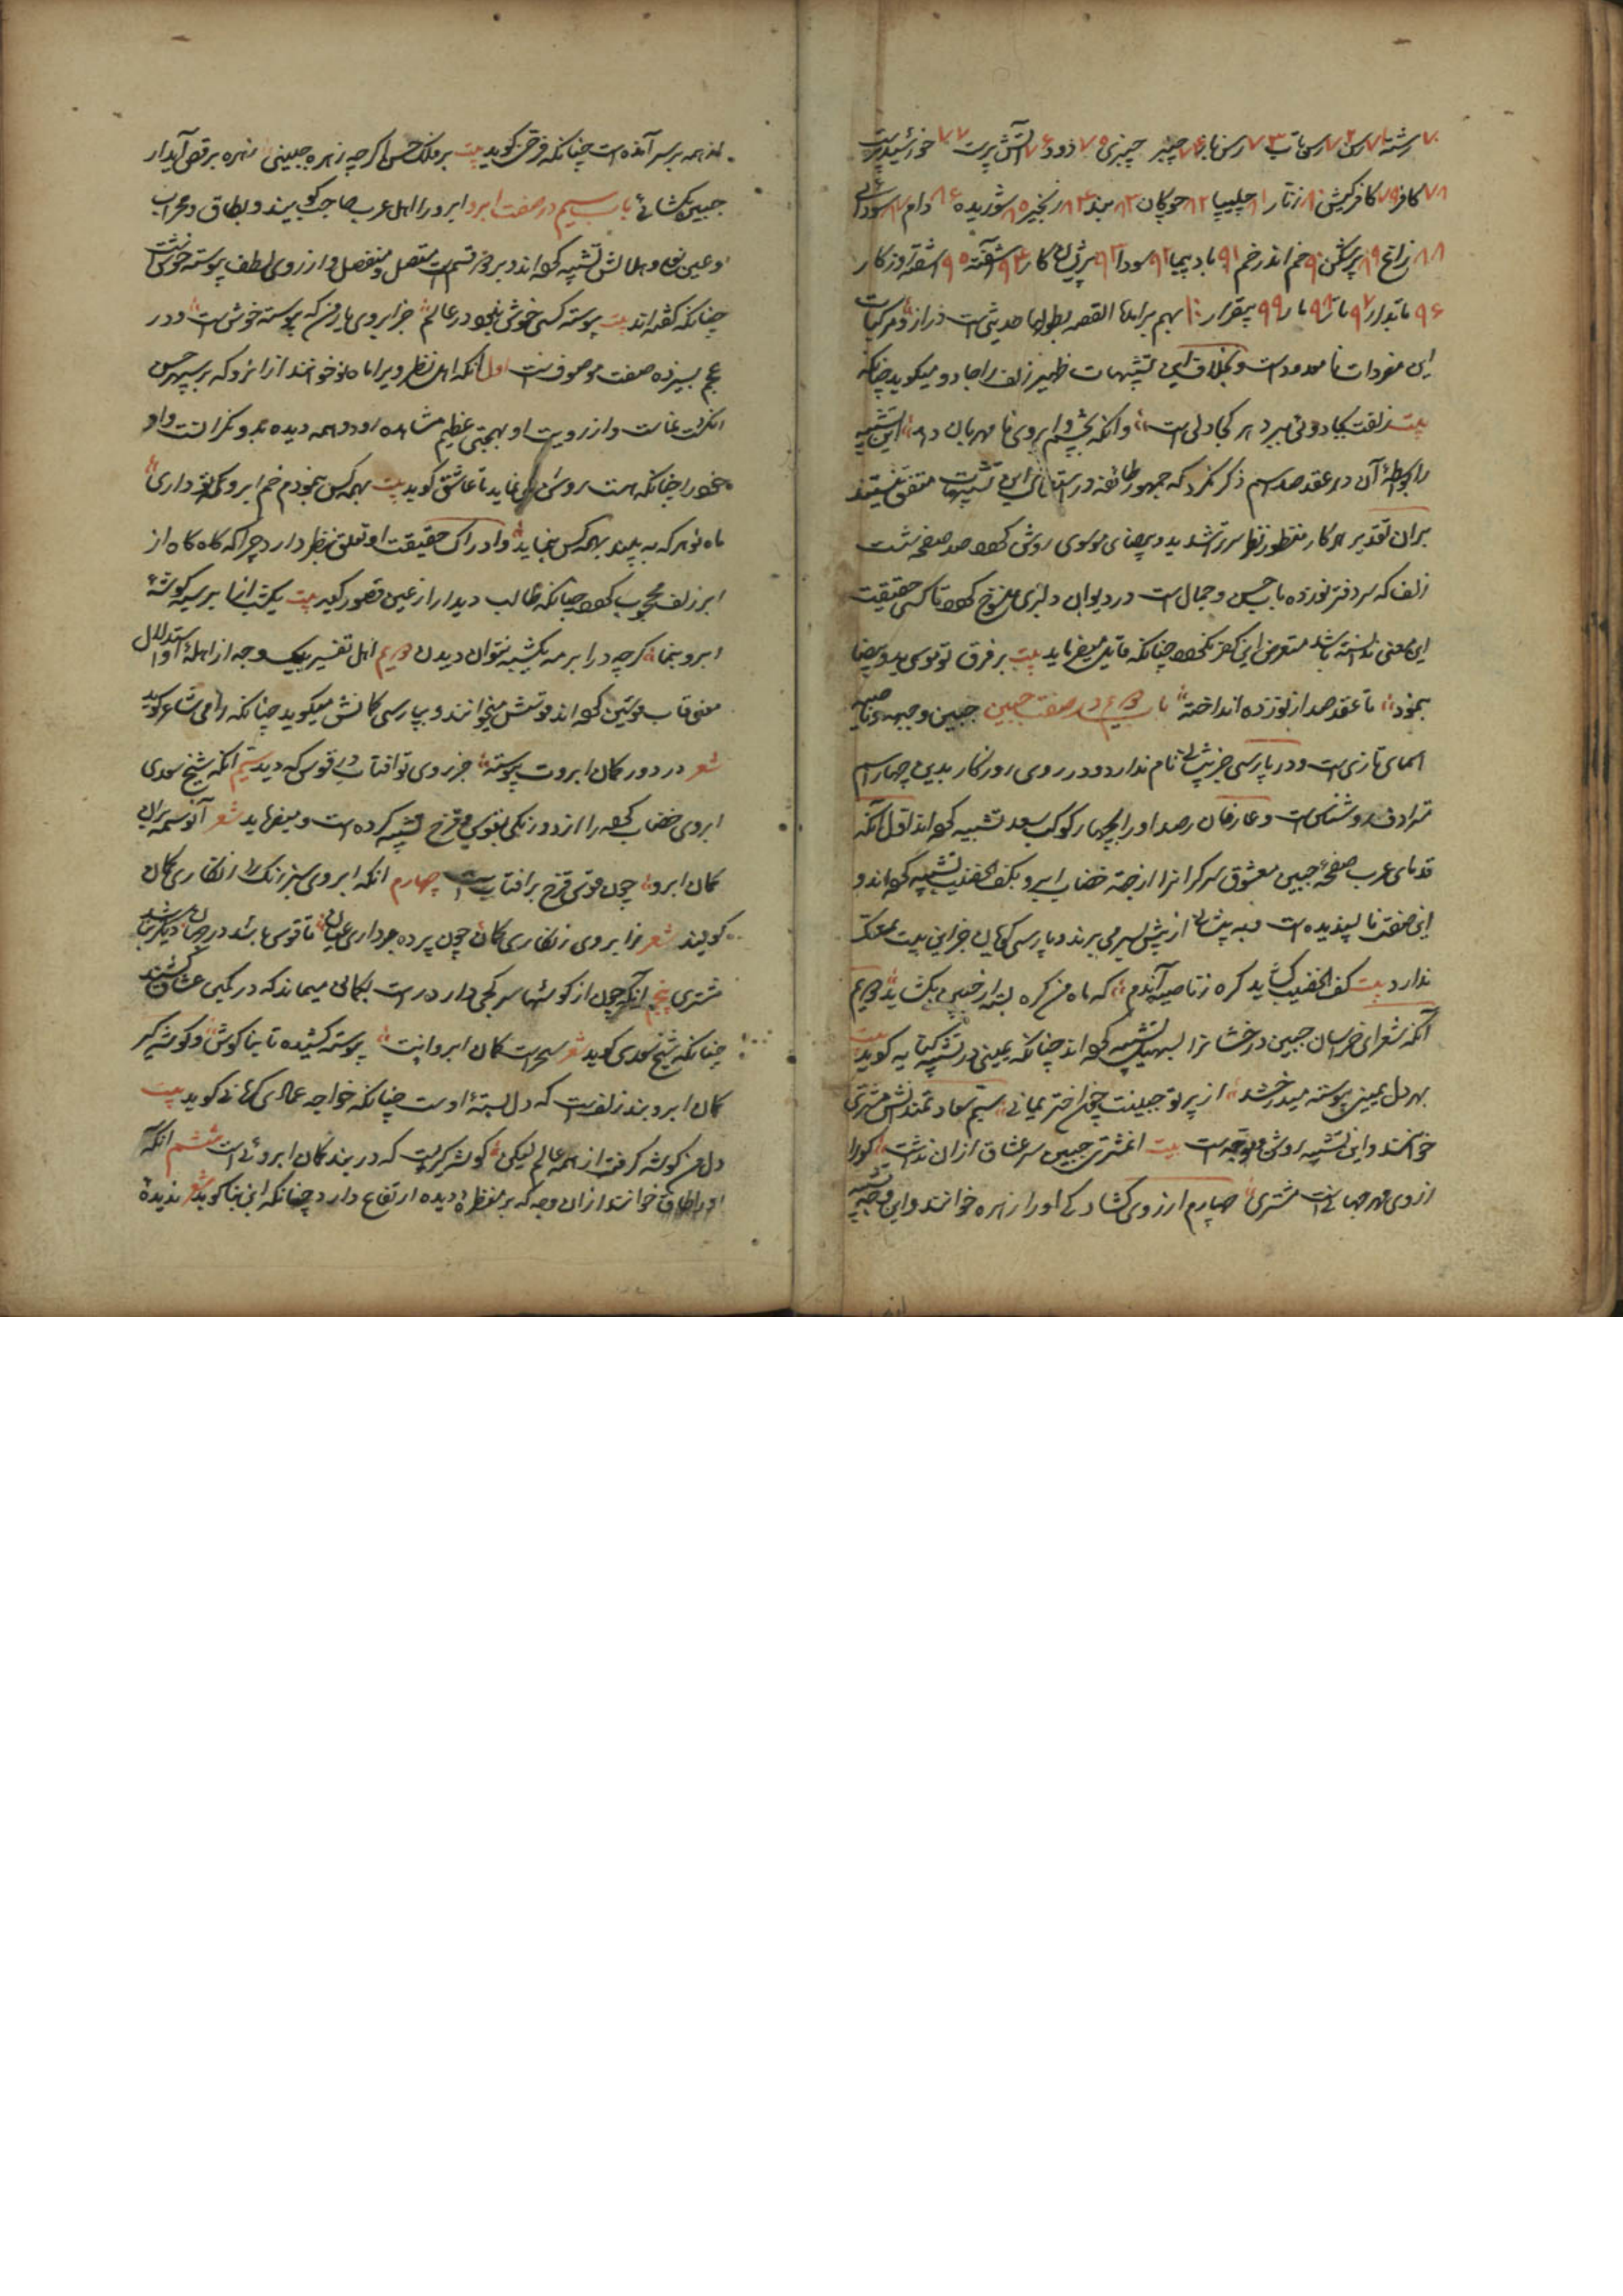 ۷۰ رشته ۷۱ رسن ۷۲ رسن تاب ۷۳ رسن باز ۷۴ چنبر چنبری ۷۵ دود ۷۶ آتش پرست ۷۷ خورشید پرست
۷۸ کافر ۷۹ کافرکیش ۸۰ زنار ۸۱ چلیپا ۸۲ چوکان ۸۳ بند ۸۴ زنجیر ۸۵ شوریده ۸۶ دام ۸۷ سودائی
۸۸ زاغ ۸۹ پرشکن ۹۰ خم اندر خم ۹۱ باد پیما ۹۲ سودا ۹۳ پریشان کار ۹۴ آشفته ۹۵ آشفته روزکار
۹۶ تابدار ۹۷ ۹۸ مار ۹۹ بیقرار ۱۰۰ بهم برآمده القصه بطولها حدیثی است دراز و مرکبات
این مفردات نامعدود است و بخلاف این تشبیهات ظهیر زلف را جادو میکوید چنانکه
بیت زلفت بجادوئی ببرد هر کجا دلی است وانکه بچشم و ابروی نامهربان دهد این تشبیه
را بواسطهٔ آن در عقد صد اسم ذکر نکرد که جمهور طائفه در استعمال این تشبیهات متفق نیستند
بران تقدیر هر کار منظور نظر سر تراشید ید و بیضای موسوی روشن کرد صد صفحه شست
زلف که سر دفتر نوزده باب حسن و جمال است در دیوان دلبری منسوخ کرد تا کسی حقیقت
این معنی ندانسته باشد متعرض این نکردد چنانکه قایل میفرماید بیت بر فرق تو موسی ید و بیضا
بنمود تا عقد صد از نوزده انداخته باب دوم در صفت جبین جبین و جبهه و ناصیه
اسمای تازی است و در پارسی جز پیشانی نام ندارد و در روی روزکار بدین چهار اسم
مترادف روشناس است و عارفان رصد او را بچهار کوکب سعد تشبیه کرده اند اول آنکه
قدمای عرب صفحه جبین معشوق را از جهة خضاب ابرو بکف الخضیب تشبیه کرده اند و
این صفت ناپسندیده است و به پیشانی از پیش بسر می برند و پارسی کویان جز این بیت تمسک
ندارد بیت کف الخضیب کشاید کره ز ناصیه آندم که ماه من کره بسته از جبین بکشاید دوم
آنکه شعرای خراسان جبین درخشانرا بسهیل تشبیه کرده اند چنانکه یمینی در تشبیه کنایه کوید بیت
بهر دل یمینی پیوسته میدرخشد از پرتو جبینت چون اختر یمانی سیم سعادتمندانش مشتری
خوانند و این تشبیه روشن و موجه است بیت ای مشتری جبین سر عشاق ازان تست کورا
ز روی مهر جهانست مشتری چهارم از روی کشادکی او را زهره خوانند و این وجه تشبیه
از همه بر سر آمده است چنانکه فرخی کوید بیت بر فلک حسن اکر چه زهره جبینی زهره برقص آید ار
جبین بکشائی باب سیم در صفت ابرو ابرو را اهل عرب حاجب کویند و بطاق و محراب
و عین نعل و هلالش تشبیه کرده اند بر دو قسم است متصل و منفصل و از روی لطف پیوسته خوشست
چنانکه کفته اند بیت پیوسته کسی خوش نبود در عالم جز ابروی یار من که پیوسته خوش است و در
عجم بسیزده صفت موصوفست اول آنکه اهل نظر ویرا ماه نو خوانند ازانرو که بر سپهر حسن
انکشت نماست و از رویت او بهجتی عظیم مشاهده رود و همه دیده بدو نکرانست و او
خود را چنانکه هست روشن می نماید تا عاشق کوید بیت بهمه کس بنمودم خم ابرو که تو داری
ماه نو هر که به بیند بهمه کس بنماید و ادراک حقیقت او تعلق بنظر دارد چرا که کاه کاه از
ابر زلف محجوب کردد چنانکه طالب دیدار از عین قصور کوید بیت یکشب از ابر سیه کوشهٔ
ابرو بنما کرچه در ابر مه یکشبه نتوان دیدن دوم اهل تفسیر بیک وجه از اهلهٔ استدلال
معنی قاب قوسین کرده اند قوسش میخوانند و بپارسی کمانش میکوید چنانکه رامی شاعر کوید
شعر در دور کمان ابروت پیوسته جز روی تو آفتاب در قوس که دید سیم آنکه شیخ سعدی
ابروی خضاب کرده را از دو رنکی بقوس قزح تشبیه کرده است و میفرماید شعر آن وسمه بران
کمان ابرو چون قوس قزح بر آفتاب است چهارم آنکه ابروی سبز رنک را زنکاری کمان
کویند شعر مرا ابروی زنکاری کمان چون پرده برداری عیان تا قوس باشد در جهان دیکر نباشد
مشتری پنجم آنکه چون از کوشها سر کجی دارد راست بکمانی میماند که در کمین عشاق کشند
چنانکه شیخ سعدی کوید شعر سحرست کمان ابروانت پیوسته کشیده تا بناکوش و کوشه کیر
کمان ابرو بند زلفست که دل بستهٔ اوست چنانکه خواجه عماد کرمانی کوید بیت
دل من کوشه کرفت از همه عالم لیکن کوشه کیریست که در بند کمان ابروئی است ششم آنکه
او را طاق خوانند ازان وجه که بر منظر دیده ارتفاع دارد چنانکه ابن بناکوید شعر ندیده